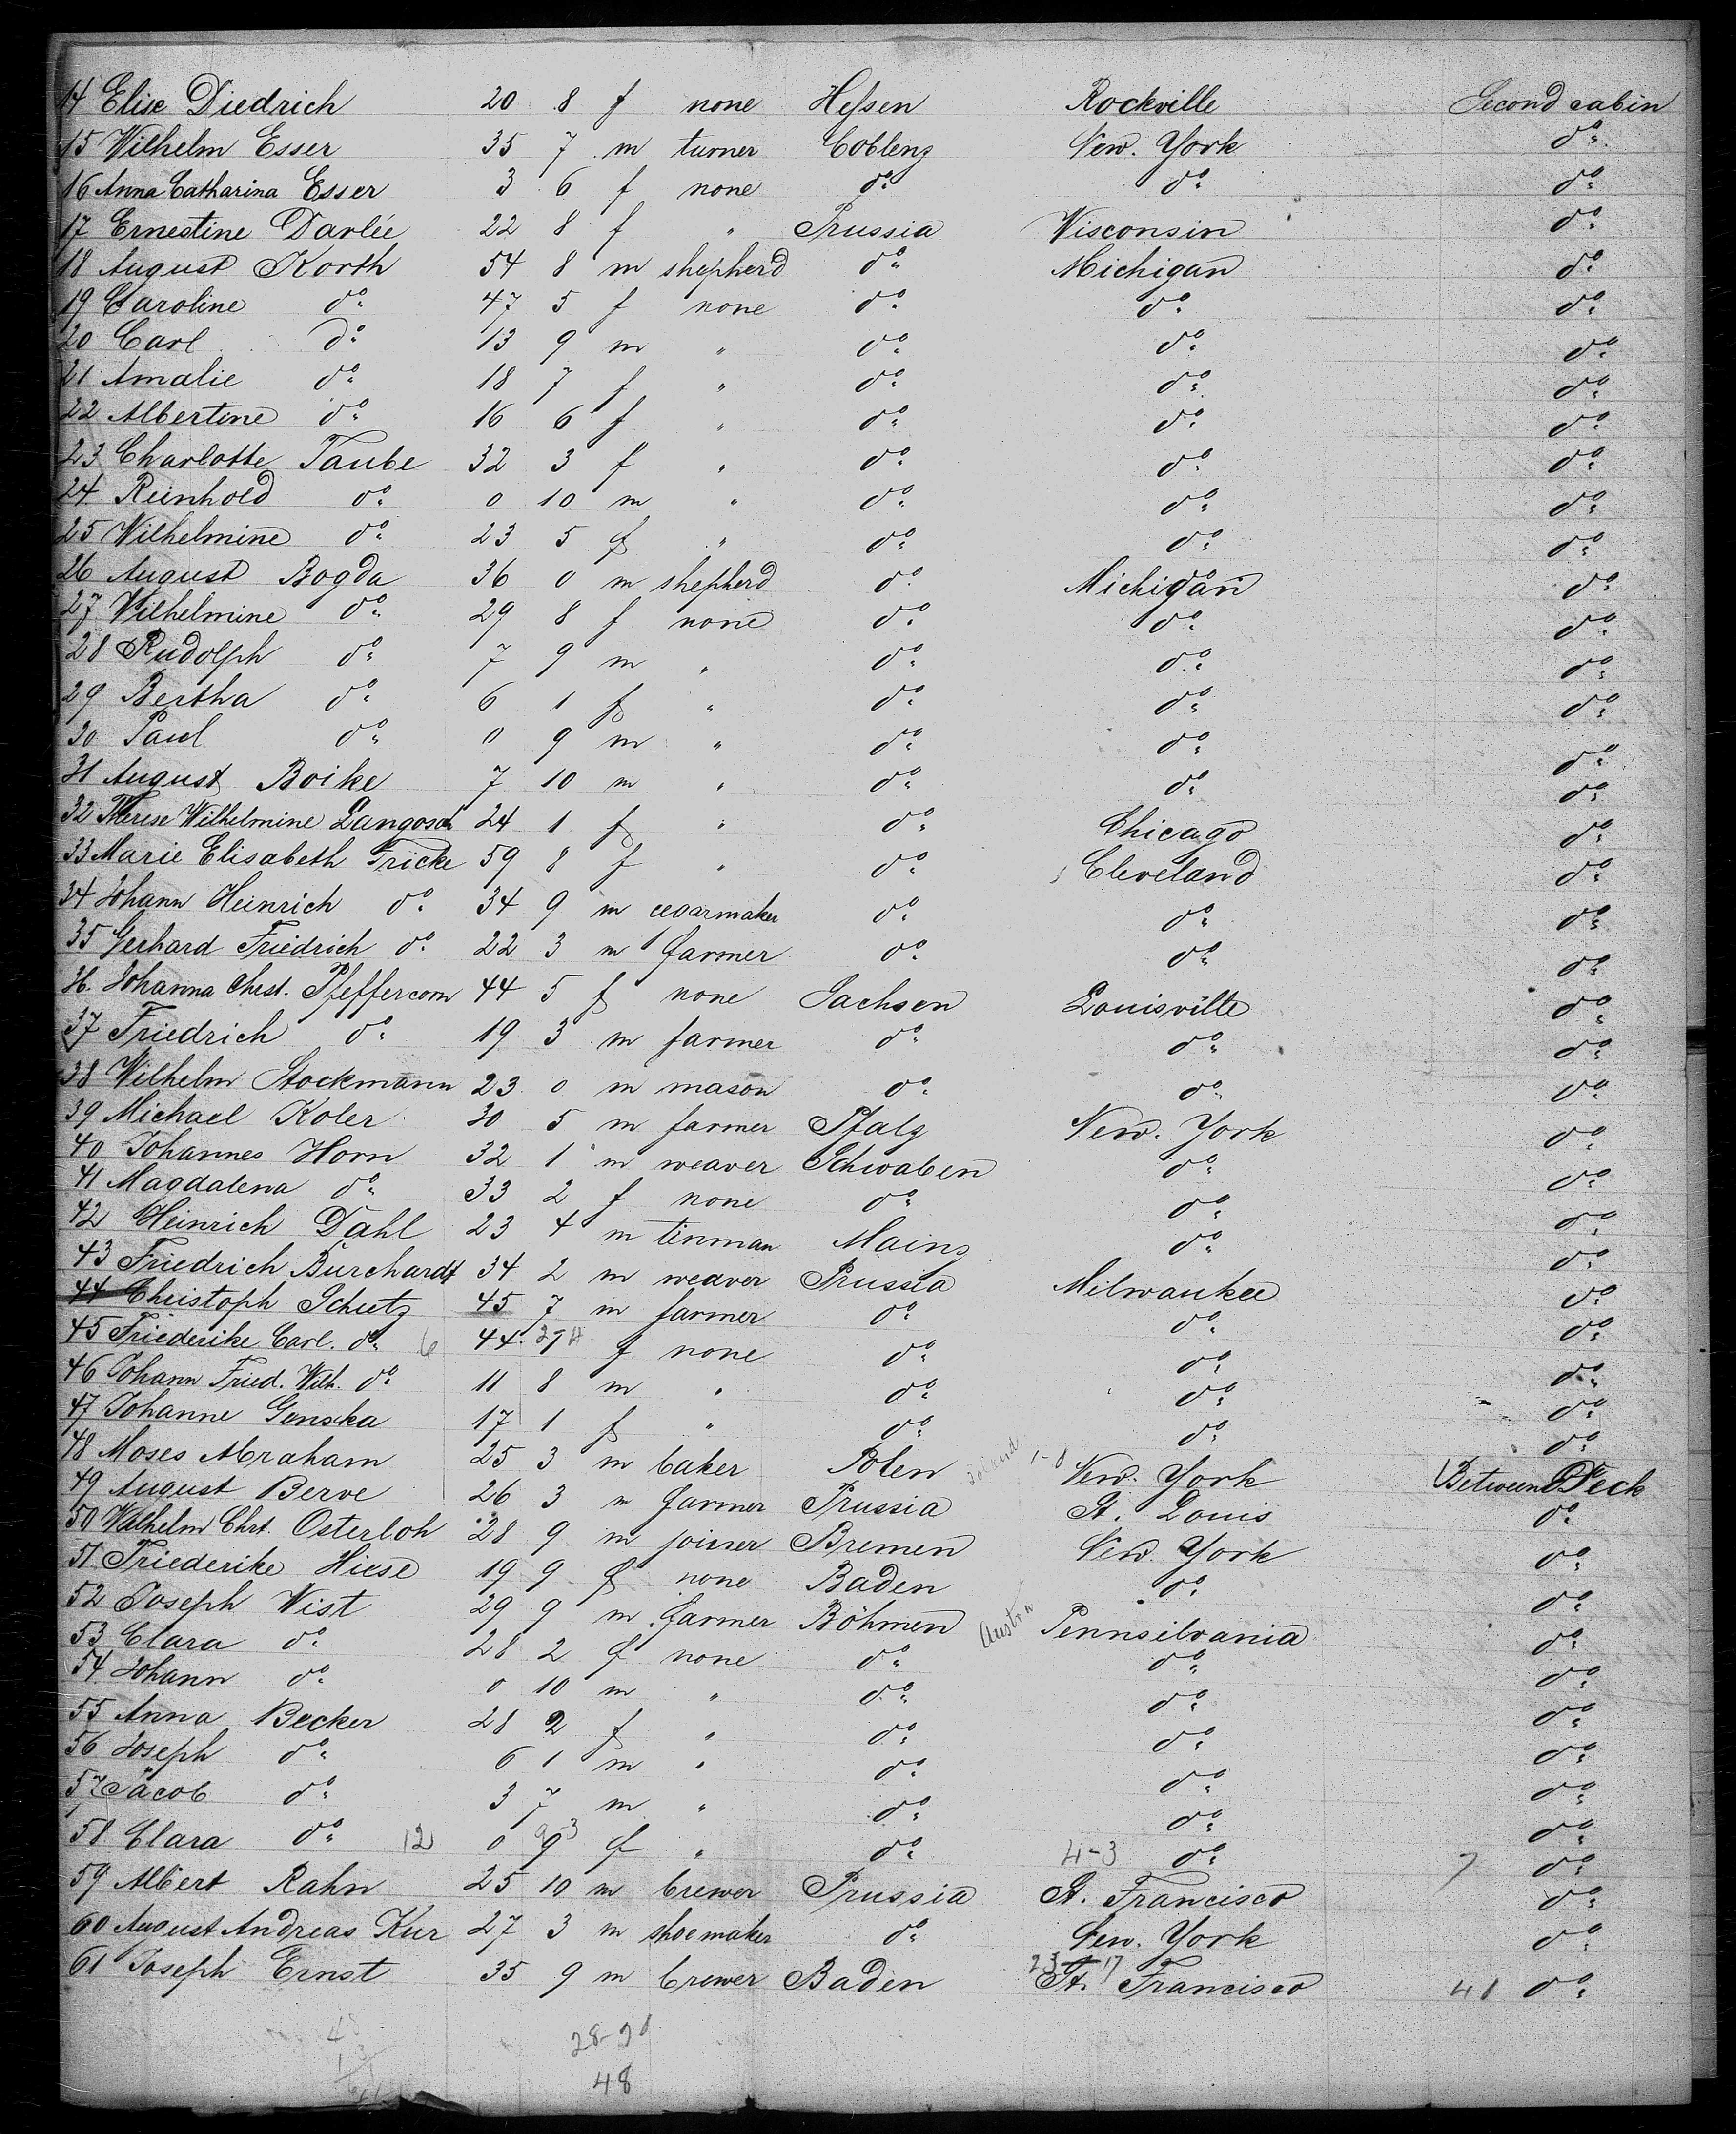 14 Elise Diedrich 20 8 f none Hessen Rockville Second cabin
15 Wilhelm Esser 35 7 m turner Coblenz New. York do
16 Anna Catharina Esser 3 6 f none do do do
17 Ernestine Darlée 22 8 f " Prussia Wisconsin do
18 August Korth 54 8 m shepherd do Michigan do
19 Caroline do 47 5 f none do do do
20 Carl do 13 9 m " do do do
21 Amalie do 18 7 f " do do do
22 Albertine do 16 6 f " do do do
23 Charlotte Taube 32 3 f " do do do
24 Reinhold do 0 10 m " do do do
25 Wilhelmine do 23 5 f " do do do
26 August Bogda 36 0 m shepherd do Michigan do
27 Wilhelmine do 29 8 f none do do do
28 Rudolph do 7 9 m " do do do
29 Bertha do 6 1 f " do do do
30 Paul do 0 9 m " do do do
31 August Boike 7 10 m " do do do
32 Therese Wilhelmine Langosch 24 1 f " do Chicago do
33 Marie Elisabeth Fricke 59 8 f " do Cleveland do
34 Johann Heinrich do 34 9 m cegarmaker do do do
35 Gerhard Friedrich do 22 3 m farmer do do do
36. Johanna Chrst. Pfeffercorn 44 5 f none Sachsen Louisville do
37 Friedrich do 19 3 m farmer do do do
38 Wilhelm Stockmann 23 0 m mason do do do
39 Michael Koler 30 5 m farmer Pfalz New. York do
40 Johannes Horn 32 1 m weaver Schwaben do do
41 Magdalena do 33 2 f none do do do
42 Heinrich Dahl 23 4 m tinman Mainz do do
43 Friedrich Burchardt 34 2 m weaver Prussia Milwaukee do
44 Christoph Schutz 45 7 m farmer do do do
45 Friederike Carl. do 6 44 f none do do do
46 Johann Fried. Wilh. do 11 8 m " do do do
47 Johanne Genska 17 1 f " do do do
48 Moses Abraham 25 3 m baker Polen Poland 1-8 New. York Between Deck
49 August Berve 26 3 m farmer Prussia St. Louis do
50 Wilhelm Chrt. Osterloh 28 9 m joiner Bremen New York do
51 Friederike Hiese 19 9 f none Baden do do
52 Joseph Wist 29 9 m farmer Böhmen Austria Pennsilvania do
53 Clara do 28 2 f none do do do
54 Johann do 0 10 m " do do do
55 Anna Becker 28 2 f " do do do
56 Joseph do 6 1 m " do do do
57 Jacob do 3 7 m " do do do
58 Clara do 12 0 9 f " do 4-3 do 7 do
59 Albert Rahn 25 10 m brewer Prussia St. Francisco do
60 August Andreas Kur 27 3 m shoemaker do New. York do
61 Joseph Ernst 35 9 m brewer Baden 23 17 St. Francisco 41 do
48